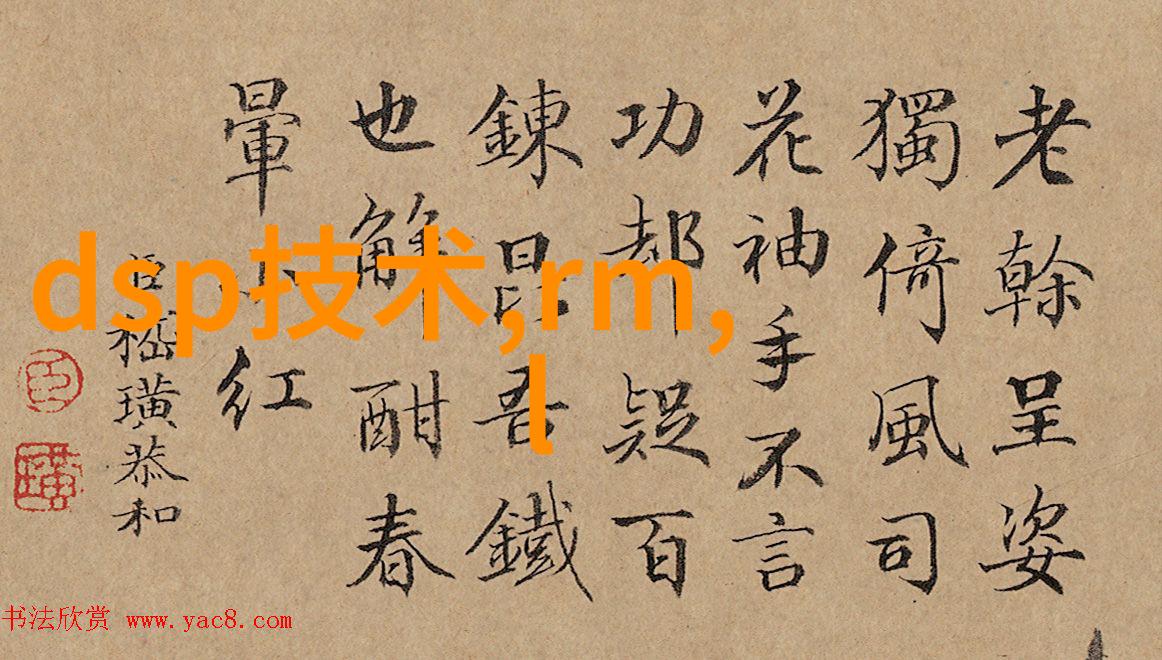 老幹呈姿
獨倚風司
花袖手不言
功都疑百
鍊昆吾鐵
也解酣春
暈小紅
臣嵇璜恭和
臣
璜
dsp技术,rm,
l
书法欣赏 www.yac8.com